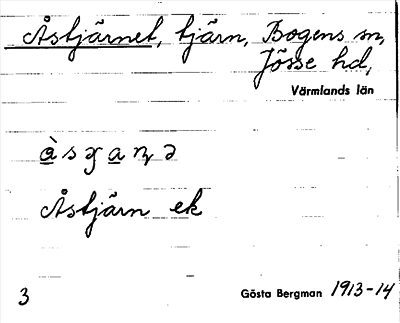 Åstjärnet, tjärn, Bogens sn,
Jösse hd,
Värmlands län
Åstjärn ek
3 Gösta Bergman 1913-14